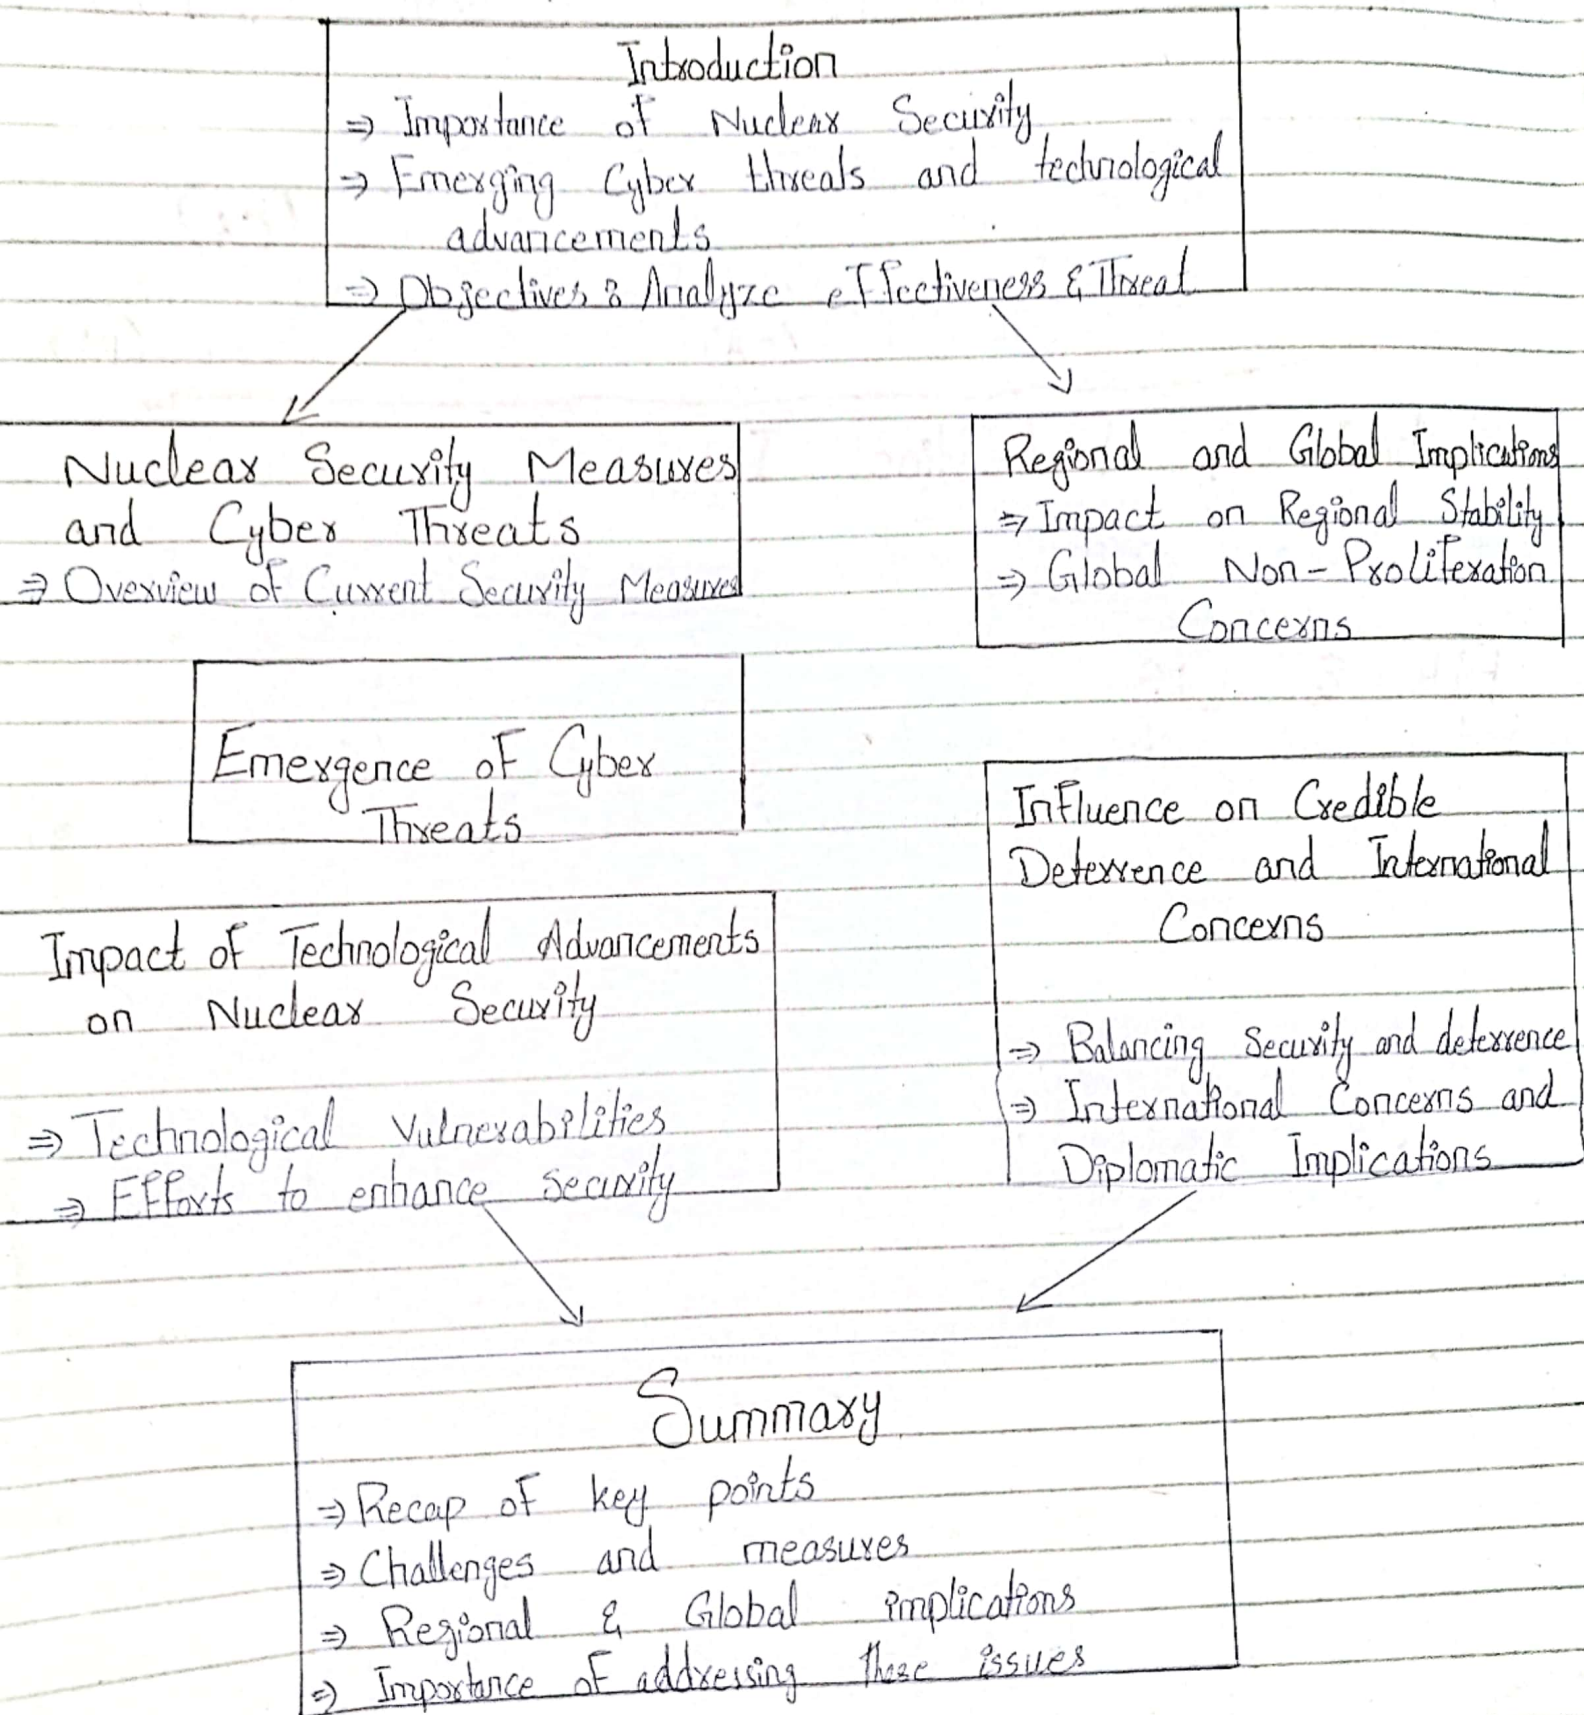 Introduction
⇒ Importance of Nuclear Security
⇒ Emerging Cyber threats and technological
advancements
⇒ Objectives : Analyze effectiveness & Threat
Nuclear Security Measures
and Cyber Threats
⇒ Overview of Current Security Measures
Emergence of Cyber
Threats
Impact of Technological Advancements
on Nuclear Security
⇒ Technological Vulnerabilities
⇒ Efforts to enhance security
Regional and Global Implications
⇒ Impact on Regional Stability
⇒ Global Non-Proliferation
Concerns
Influence on Credible
Deterrence and International
Concerns
⇒ Balancing Security and deterrence
⇒ International Concerns and
Diplomatic Implications
Summary
⇒ Recap of key points
⇒ Challenges and measures
⇒ Regional & Global implications
⇒ Importance of addressing these issues